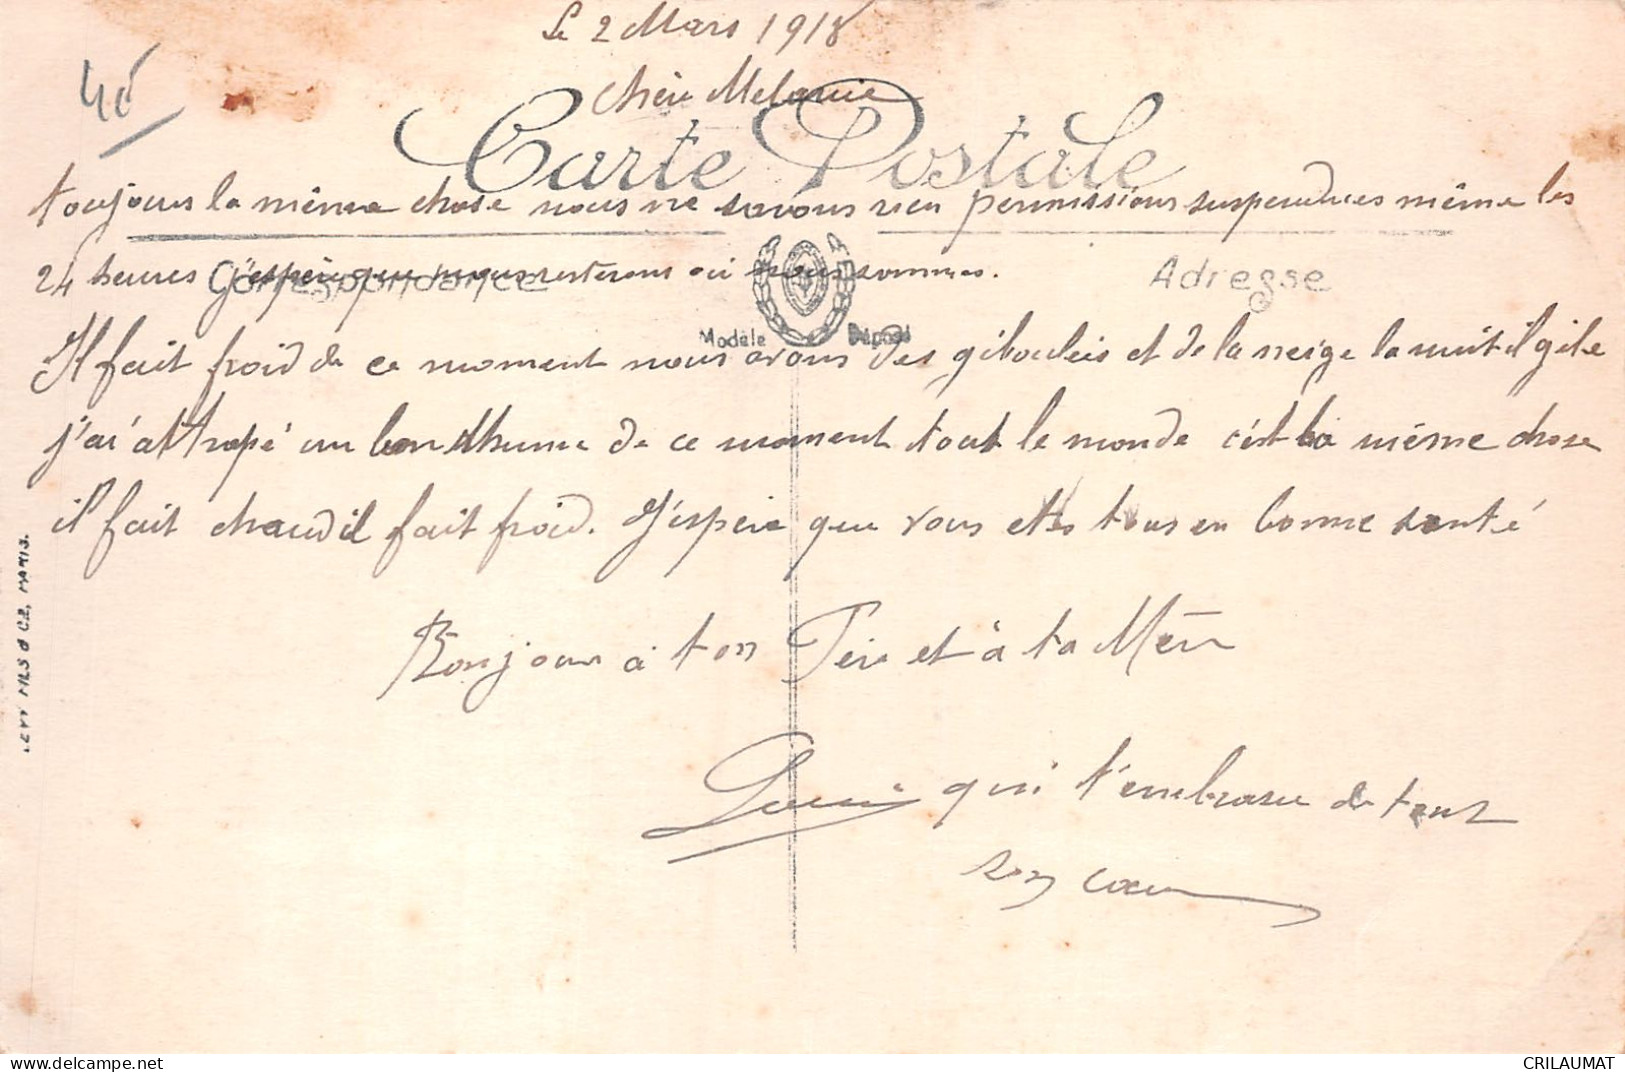 Le 2 Mars 1918
45
Chère Melanie
Carte Postale
toujours la même chose nous ne savons rien permissions suspendues même les
24 heures j'espère que nous resterons ou nous sommes.
Correspondance
Adresse
Modèle Déposé
Il fait froid de ce moment nous avons des gibouleis et de la neige la nuit il gèle
j'ai attrapé un bon rhume de ce moment tout le monde c'est la même chose
il fait chaud il fait froid. J'espère que vous etes tous en bonne santé
Bonjour à ton Père et à ta Mère
qui t'embrasse de tout
son coeur
LEVY FILS & CIE, PARIS.
CRILAUMAT